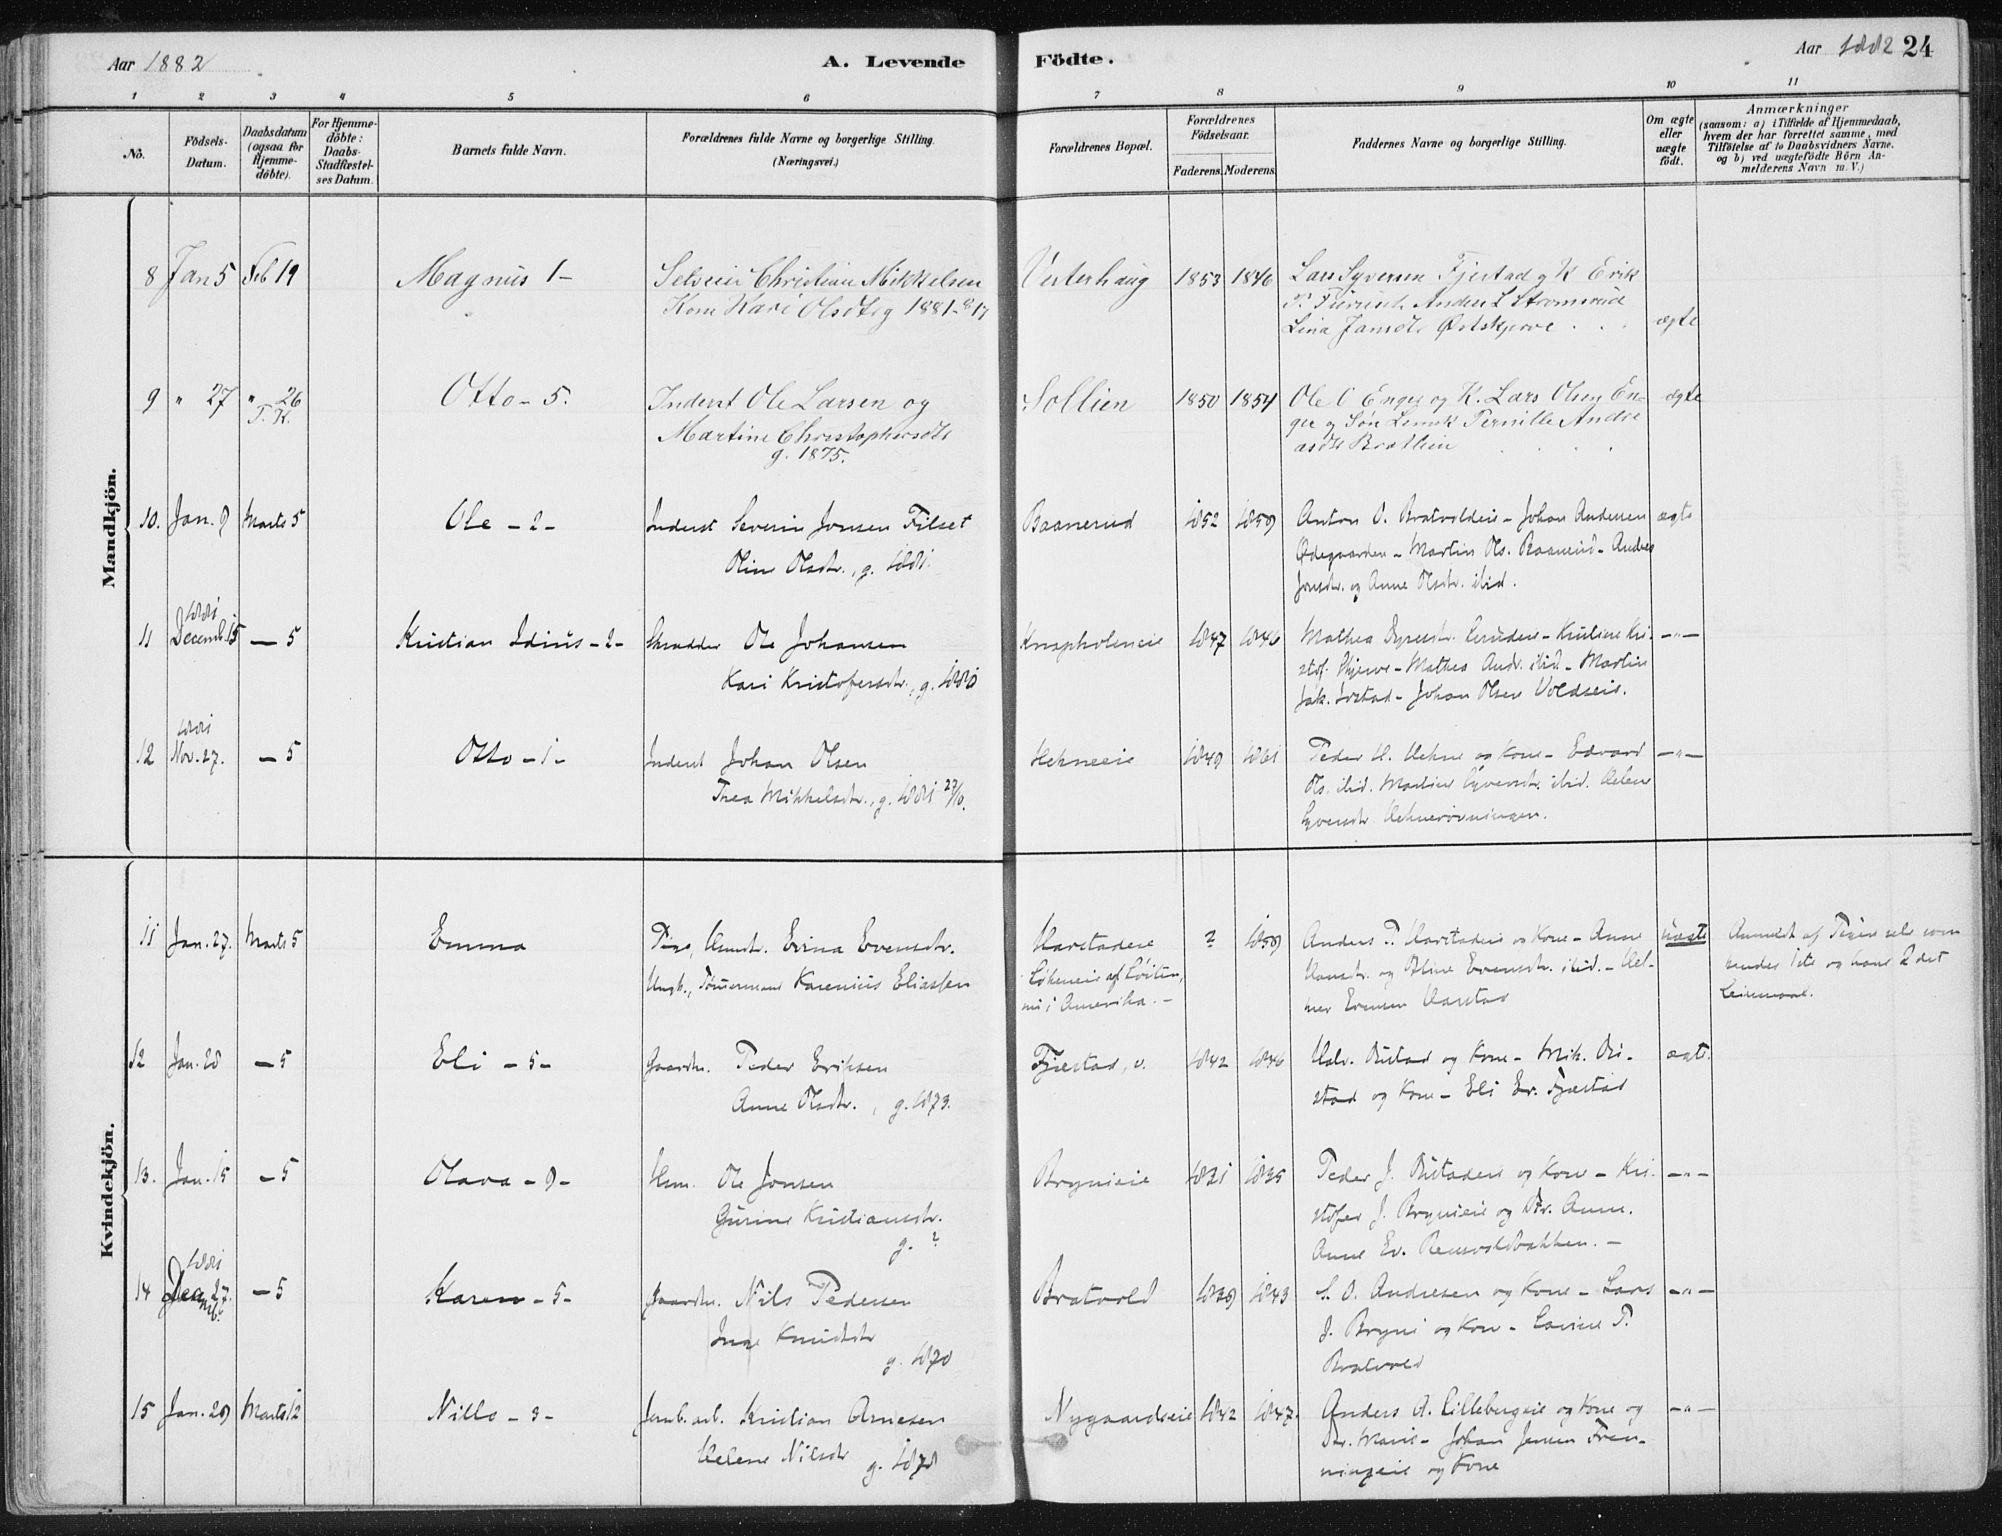 Aar 1882
A. Levende
Födte.
Aar 1882 24
1 2 3 4 5 6 7 8 9 10 11
Nô.
Födsels-Datum.
Daabsdatum (ogsaa for Hjemme-döbte).
For Hjemme-döbte: Daabs-Stadfæstel-ses Datum.
Barnets fulde Navn.
Forældrenes fulde Navne og borgerlige Stilling.
(Næringsvei.)
Forældrenes Bopæl.
Forældrenes Födselsaar.
Faderens. Moderens.
Faddernes Navne og borgerlige Stilling.
Om ægte eller uægte födt.
Anmærkninger
(saasom: a) i Tilfælde af Hjemmedaab,
hvem der har forrettet samme, med
Tilföielse af to Daabsvidners Navne.
og b) ved uægtefödte Börn An-
melderens Navn m. V.)
Mandkjön.
8 Jan 5 Feb 19 Magnus 1- Selveier Christian Mikkelsen Vesterhaug 1853 1846 Lars Syversen Fjestad og K Erik
Kone Kari Olsdtr g 1881 Anders L Stromsrud
Lina Jansdtr ægte
9 " 27 " 26 Otto - 5. Inderst Ole Larsen og Sollien 1850 1854 Ole O Enger og K. Lars Olsen En- ægte
T. K. Martine Christophersdtr ger og Søn Pernille Andre
g. 1875. asdtr Bratlien
10. Jan. 9 Marts 5 Ole - 2- Inderst Severin Jonsen Filset Baanerud 1852 1859 Anton O. Bratvoldeie - Johan Andersen ægte
Oline Olsdtr., g. 1881. Ødegaarden - Martin Ols. Baanerud - Andrea
Jonsdtr. og Anne Olsdtr. ibid.
1881
11 Decemb. 15 — 5 Kristian Idius - 2- Skrædder Ole Johansen Knapholeneie 1847 1846 Mathea - Kristine Kri- —"—
Kari Kristofersdtr., g. 1880 stof. - Mathea And. ibid - Martin
Jak. - Johan Olsen Voldseie.
1881
12 Nov. 27. — 5 Otto - 1- Inderst Johan Olsen Hekneeie 1849 1861 Peder H. Hekne og Kone - Edvard —"—
Thea Mikkelsdtr., g. 1881 27/10. Ols. ibid. Martine Syversdtr. ibid. Helene
Syversdtr.
Kvindekjön.
11 Jan. 27. Marts 5 Emma Pige, Erina Evensdtr. Harstadeie ? 1859 Anders P. Harstadeie og Kone - Anne uægte Anmeldt af Pigen selv som
Ungk., Tömmermand Karenius Eliassen Løkeneie af Løiten, Hansdtr. og Oline Evensdtr. ibid. - Hel- hendes 1ste og hans 2det
nu i Amerika. - mer Evensen Harstad Leiermaal.
12 Jan. 28 — 5 Eli - 5- Gaardm. Peder Eriksen Fjæstad, v. 1842 1846 Halv. Rustad og Kone - Mik. Ru- ægte.
Anne Olsdtr., g. 1873. stad og Kone - Eli Er. Fjæstad
13. Jan. 15 — 5 Olava - 9- Hsm. Ole Jonsen Brynieie 1831 1835 Peder J. Rustadeie og Kone - Kri- —"—
Gurine Kristiansdtr. stofer J. Brynieie og Dtr. Anne.
g. ? Anne Ev. -
1881
14 Decemb. 27. — 5 Karen - 5- Gaardm. Nils Pedersen Bratvold 1839 1843 S. O. Andresen og Kone - Lars —"—
Inge Knudsdtr J. Bryni og Kone - Lovine P.
g. 1870 Bratvold
15 Jan. 29 Marts 12 Nillo - 3- Jernb. arb. Kristian Arnesen Nygaardseie 1842 1847. Anders A. Lillebergeie og Kone og —"—
Helene Nilsdtr g. 1878 Dtr. Marie - Johan Jensen Fren-
ningeie og Kone